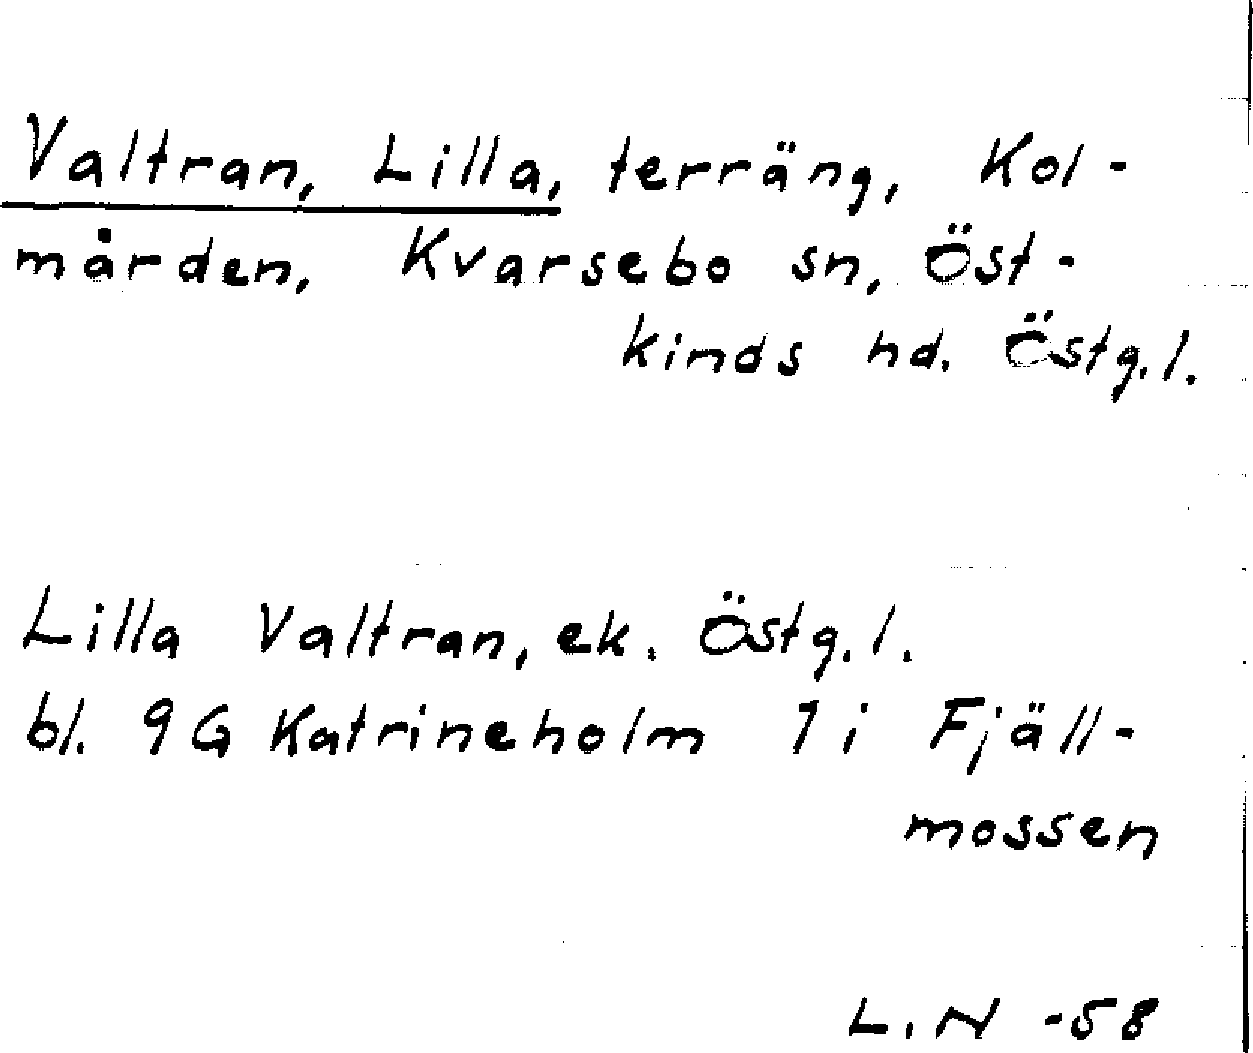 Valtran, Lilla, terräng, Kol-
mården, Kvarsebo sn, Öst-
kinds hd. Östg.l.
Lilla Valtran, ek. Östg.l.
bl. 9G Katrineholm 1i Fjäll-
mossen
L.N -58